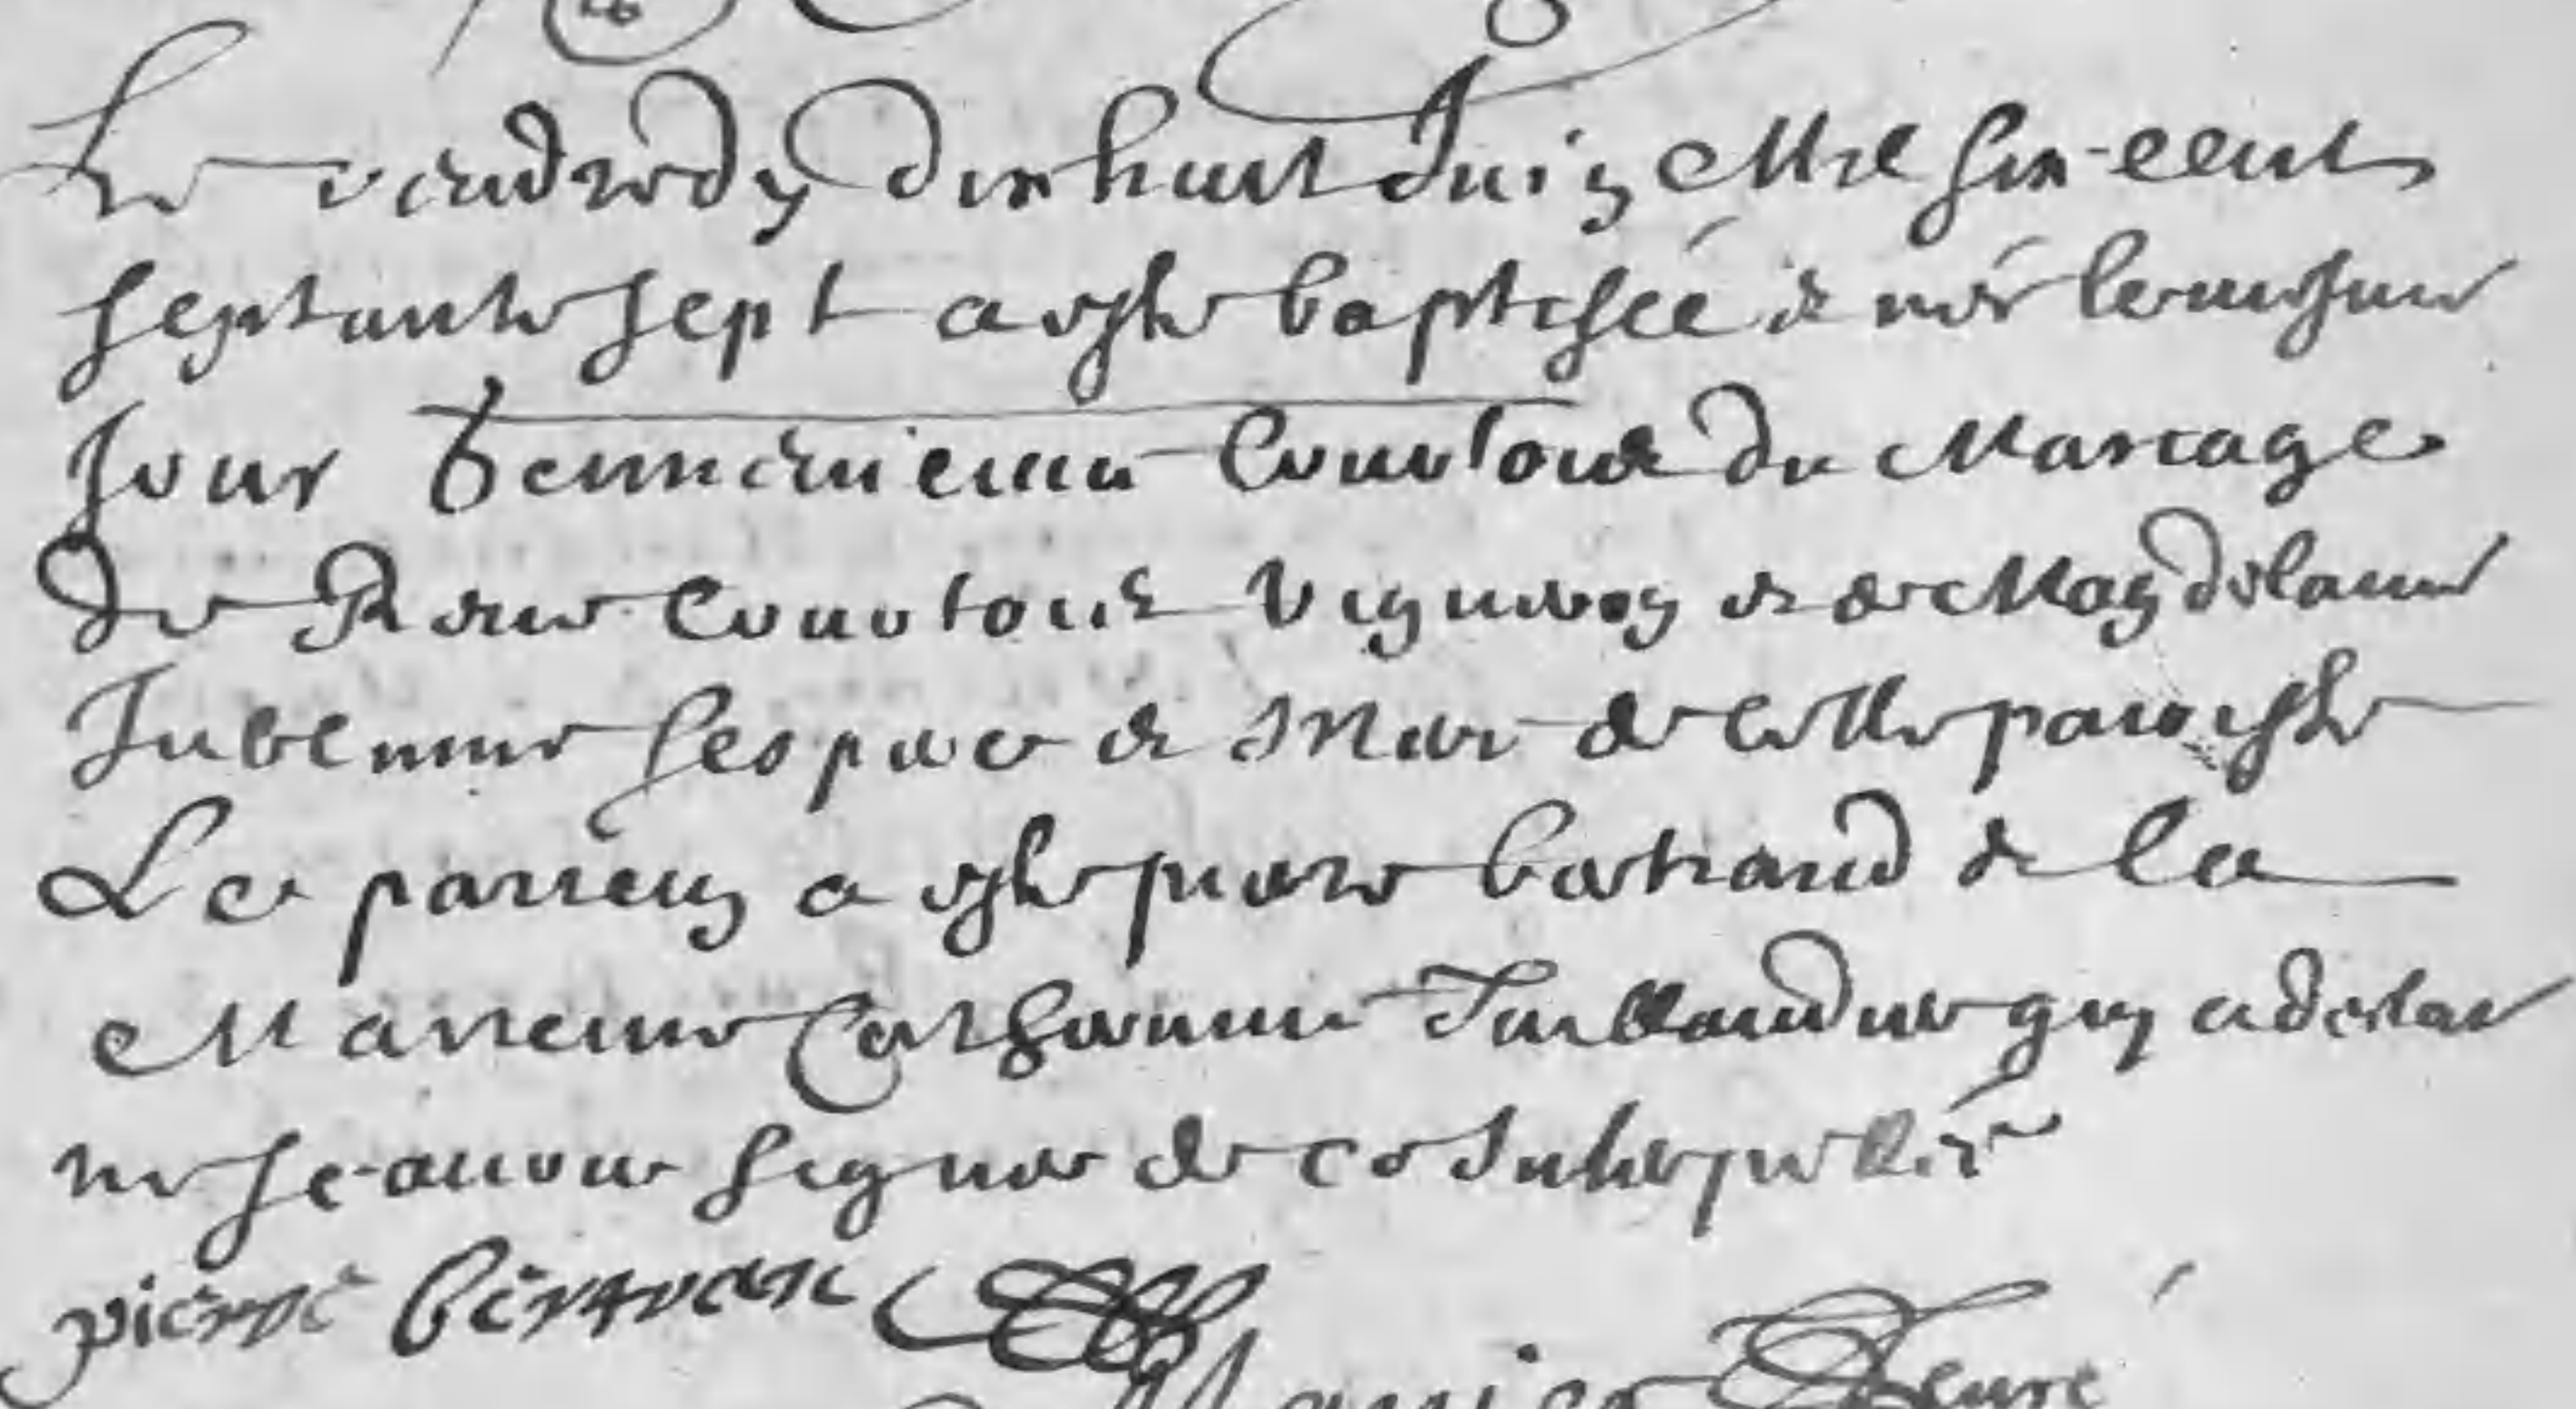 Le vendredy dix huict Juin Mil six-cent
septante sept a este baptisée & née le mesme
Jour Bennenienne Courtoux du Mariage
de René Courtoux Vigneron & de Magdelaine
Jubenne ses pere & Mere de cette paroisse
Le parrein a este pierre bertrand & la
Marreine Catherinne qui a declare
ne scauoir signer de ce Interpellée
pierre bertran
Curé